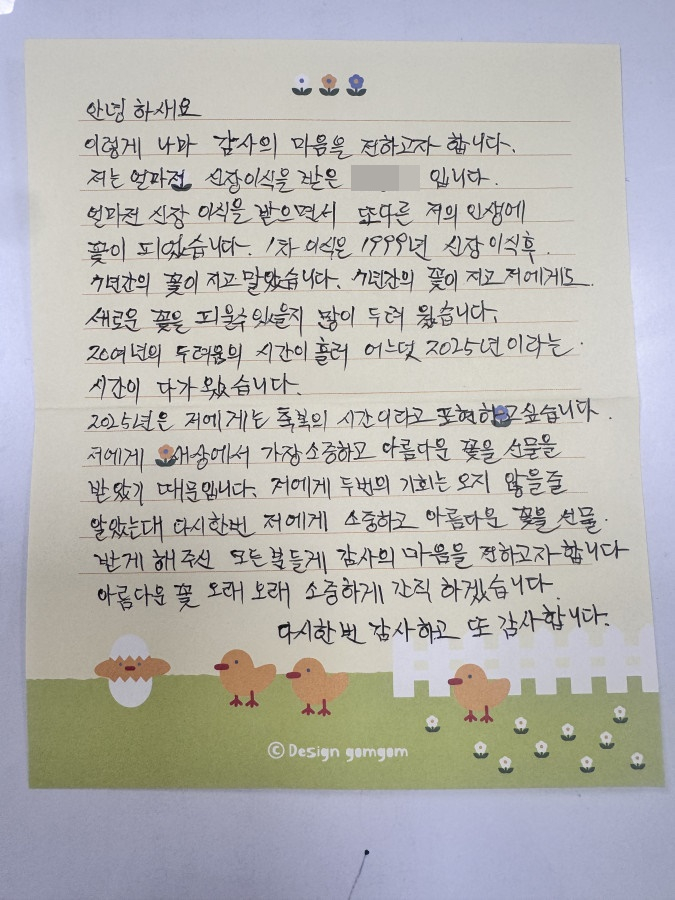 안녕 하새요
이렇게 나마 감사의 마음을 전하고자 합니다.
저는 얼마전 신장이식을 받은 입니다.
얼마전 신장 이식을 받으면서 또다른 저의 인생에
꽃이 피었습니다. 1차 이식은 1999년 신장 이식후.
7년간의 꽃이 지고 말았습니다. 7년간의 꽃이 지고 저에게도.
새로운 꽃을 피울수 있을지 많이 두려 웠습니다.
20여년의 두려움의 시간이 흘러 어느덧 2025년 이라는.
시간이 다가 왔습니다.
2025년은 저에게는 축복의 시간이라고 표현하고싶습니다.
저에게 새상에서 가장 소중하고 아름다운 꽃을 선물을
받았기 때문입니다. 저에게 두번의 기회는 오지 않을줄
알았는대 다시한번 저에게 소중하고 아름다운 꽃을 선물.
받게 해주신 모든분들게 감사의 마음을 전하고자 합니다
아름다운 꽃 오래 오래 소중하게 간직 하겠습니다.
다시한번 감사하고 또 감사합니다.
© Design gomgom